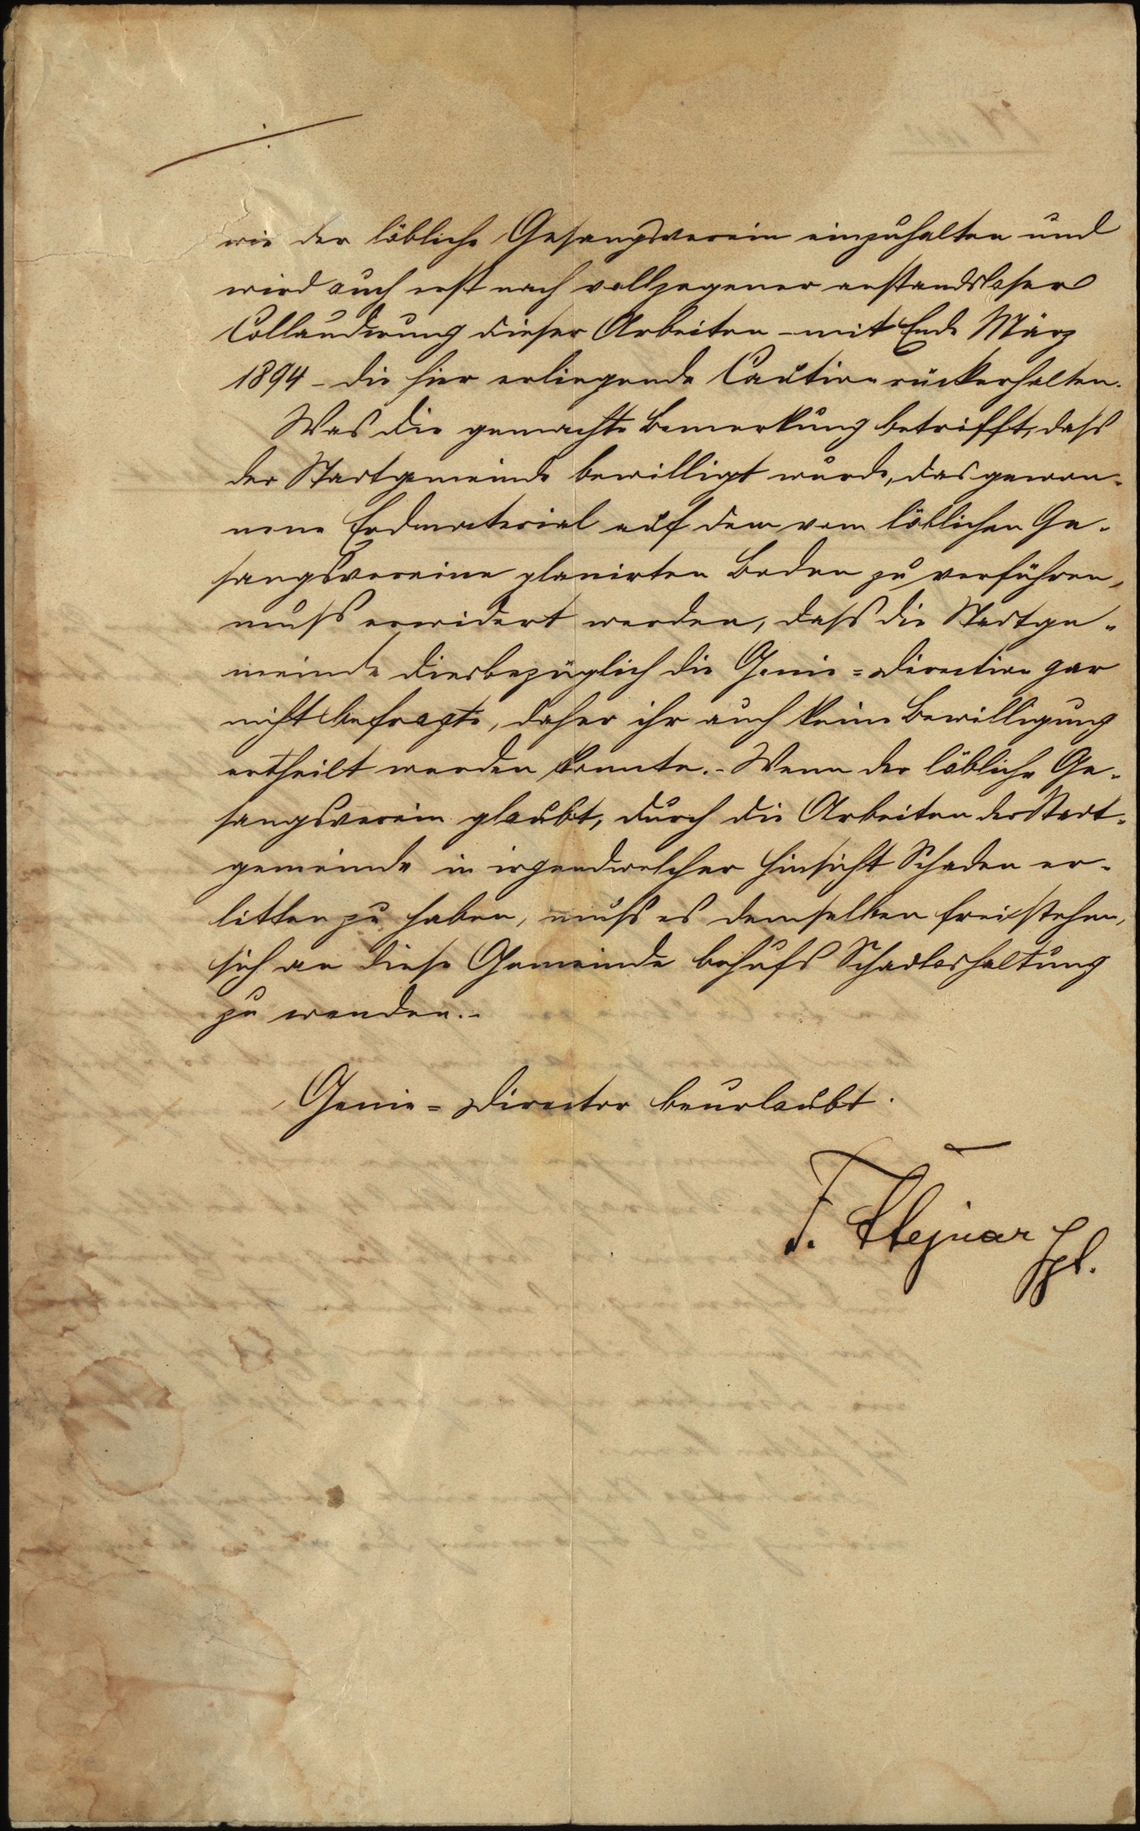 wie der löbliche Gesangsverein einzuhalten und
wird auch erst nach vollzogener anstandsloser
Collaudirung dieser Arbeiten – mit Ende März
1894 – die hier erliegende Caution rückerhalten.
Was die gemachte Bemerkung betrifft, dass
der Stadtgemeinde bewilligt wurde, das gewon-
nene Erdmaterial auf dem vom löblichen Ge-
sangsvereine planirten Boden zu verführen,
muss erwidert werden, dass die Stadtge-
meinde diesbezüglich die Genie-Direction gar
nicht befragte, daher ihr auch keine Bewilligung
ertheilt werden konnte. – Wenn der löbliche Ge-
sangsverein glaubt, durch die Arbeiten der Stadt-
gemeinde in irgendwelcher Hinsicht Schaden er-
litten zu haben, muss es demselben frei stehen,
sich an diese Gemeinde behufs Schadloshaltung
zu wenden. –
Genie-Director beurlaubt.
F. Hejnar